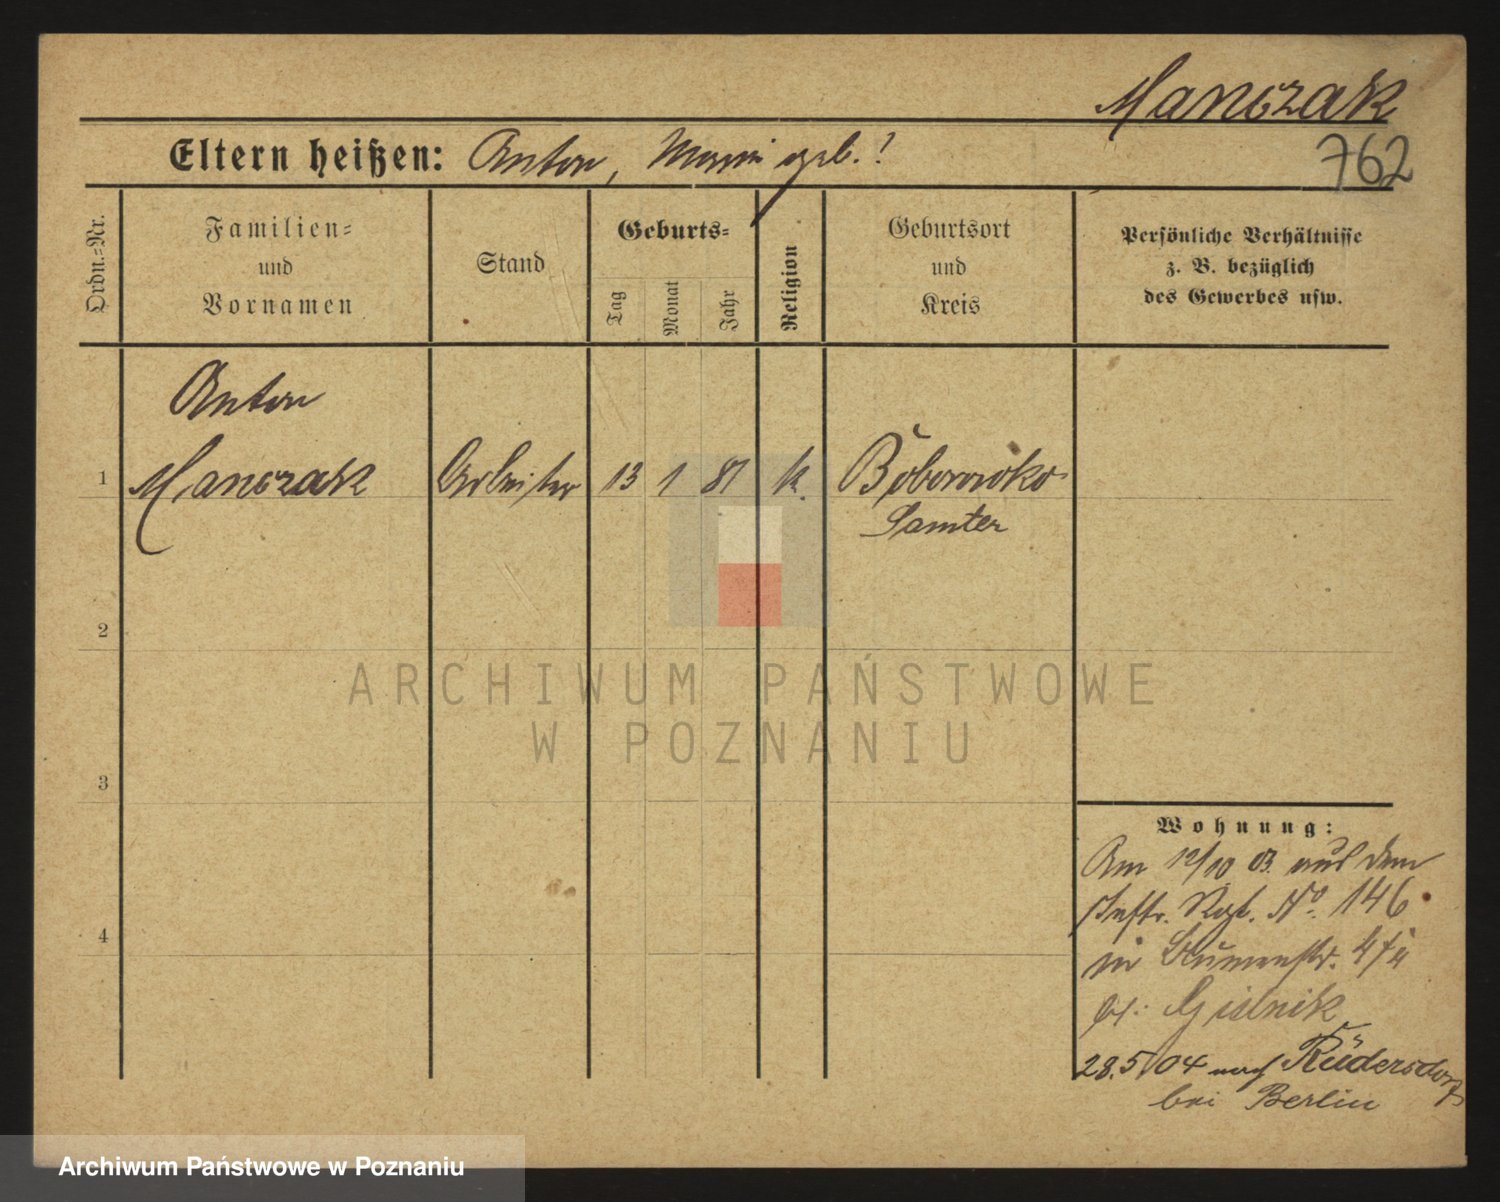 Manczak
762
Eltern heißen: Anton, Marie geb. ?
Ordn.-Nr.
Familien-
und
Vornamen
Stand
Geburts-
Tag
Monat
Jahr
Religion
Geburtsort
und
Kreis
Persönliche Verhältnisse
z. B. bezüglich
des Gewerbes usw.
Anton
1 Manczak Arbeiter 13 1 81 k.
Samter
2
3
4
ARCHIWUM PAŃSTWOWE
W POZNANIU
Wohnung:
Am 12/10 03. aus dem
Inftr. Rgt. No. 146
in Blumenstr.
28.5 04 nach Rüdersdorf
bei Berlin
Archiwum Państwowe w Poznaniu